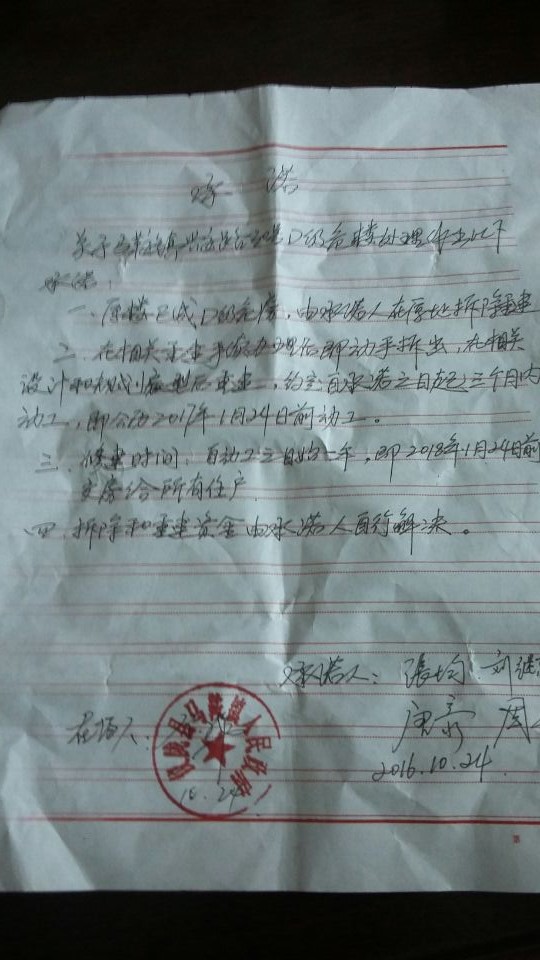 承 诺
关于 D级危楼处理作出以下
承诺:
一、原楼已成D级危房,由承诺人在原地拆除重建
二、在相关 手续办理后即动手拆出,在相关
设计和规划 后重建,约定自承诺之日起三个月内
动工,即公历2017年1月24日前动工。
三、修建时间:自动工之日始一年,即2018年1月24日前
交房给所有住户
四、拆除和重建资金由承诺人自行解决。
承诺人:张均 刘继
唐 周
2016.10.24.
在场人:
县马 镇人民政府
10.24
第